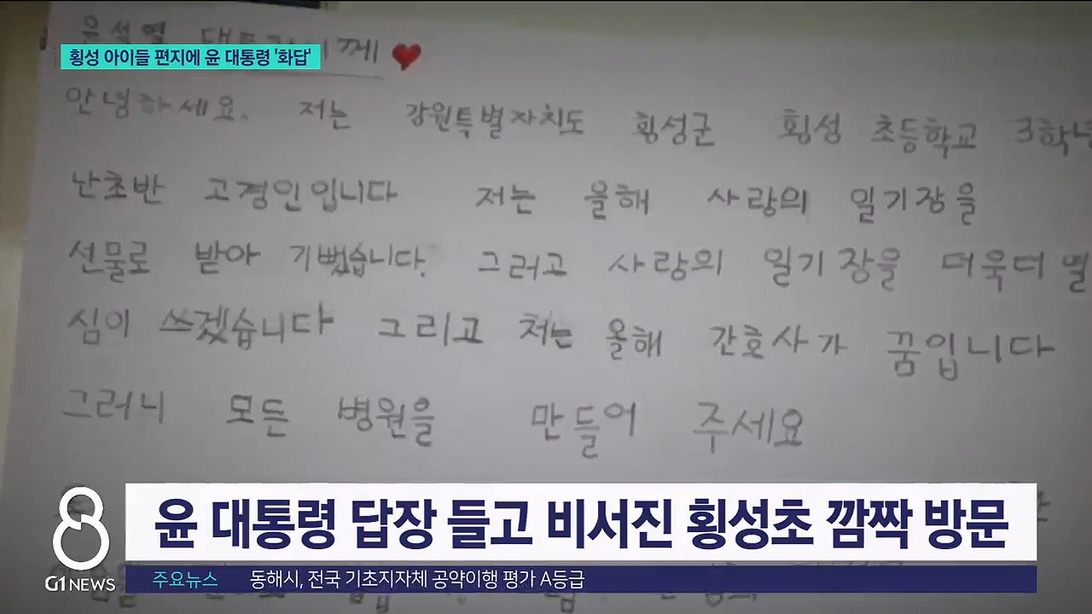 윤석열 대통령님께 ❤
횡성 아이들 편지에 윤 대통령 '화답'
안녕하세요. 저는 강원특별자치도 횡성군 횡성 초등학교 3학년
난초반 고경인입니다 저는 올해 사랑의 일기장을
선물로 받아 기뻤습니다. 그러고 사랑의 일기장을 더욱더 열
심이 쓰겠습니다 그리고 저는 올해 간호사가 꿈입니다
그러니 모든 병원을 만들어 주세요
윤 대통령 답장 들고 비서진 횡성초 깜짝 방문
8
G1NEWS
주요뉴스 동해시, 전국 기초지자체 공약이행 평가 A등급